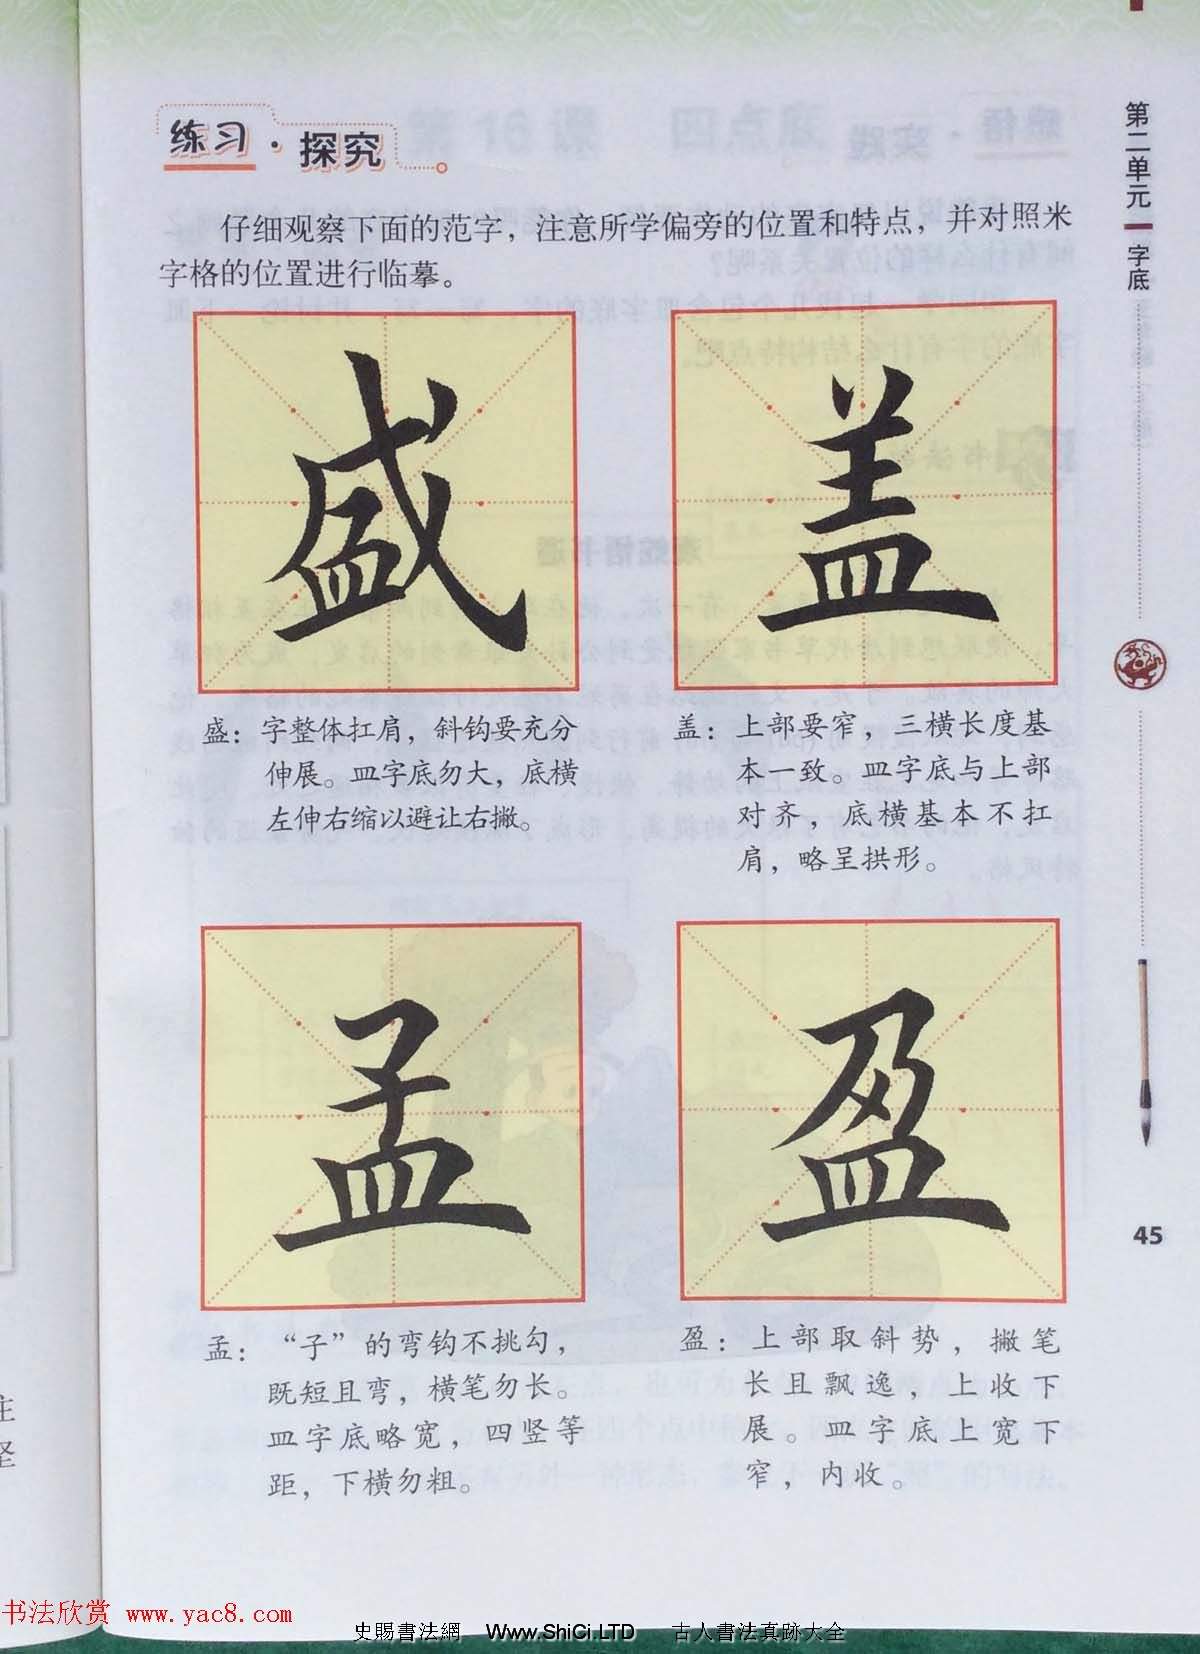 练习·探究
仔细观察下面的范字，注意所学偏旁的位置和特点，并对照米
字格的位置进行临摹。
盛
盖
盛：字整体扛肩，斜钩要充分
伸展。皿字底勿大，底横
左伸右缩以避让右撇。
盖：上部要窄，三横长度基
本一致。皿字底与上部
对齐，底横基本不扛
肩，略呈拱形。
孟
盈
孟：“子”的弯钩不挑勾，
既短且弯，横笔勿长。
皿字底略宽，四竖等
距，下横勿粗。
盈：上部取斜势，撇笔
长且飘逸，上收下
展。皿字底上宽下
窄，内收。
第二单元
字底
45
书法欣赏 www.yac8.com
史賜書法網 Www.ShiCi.LTD 古人書法真跡大全